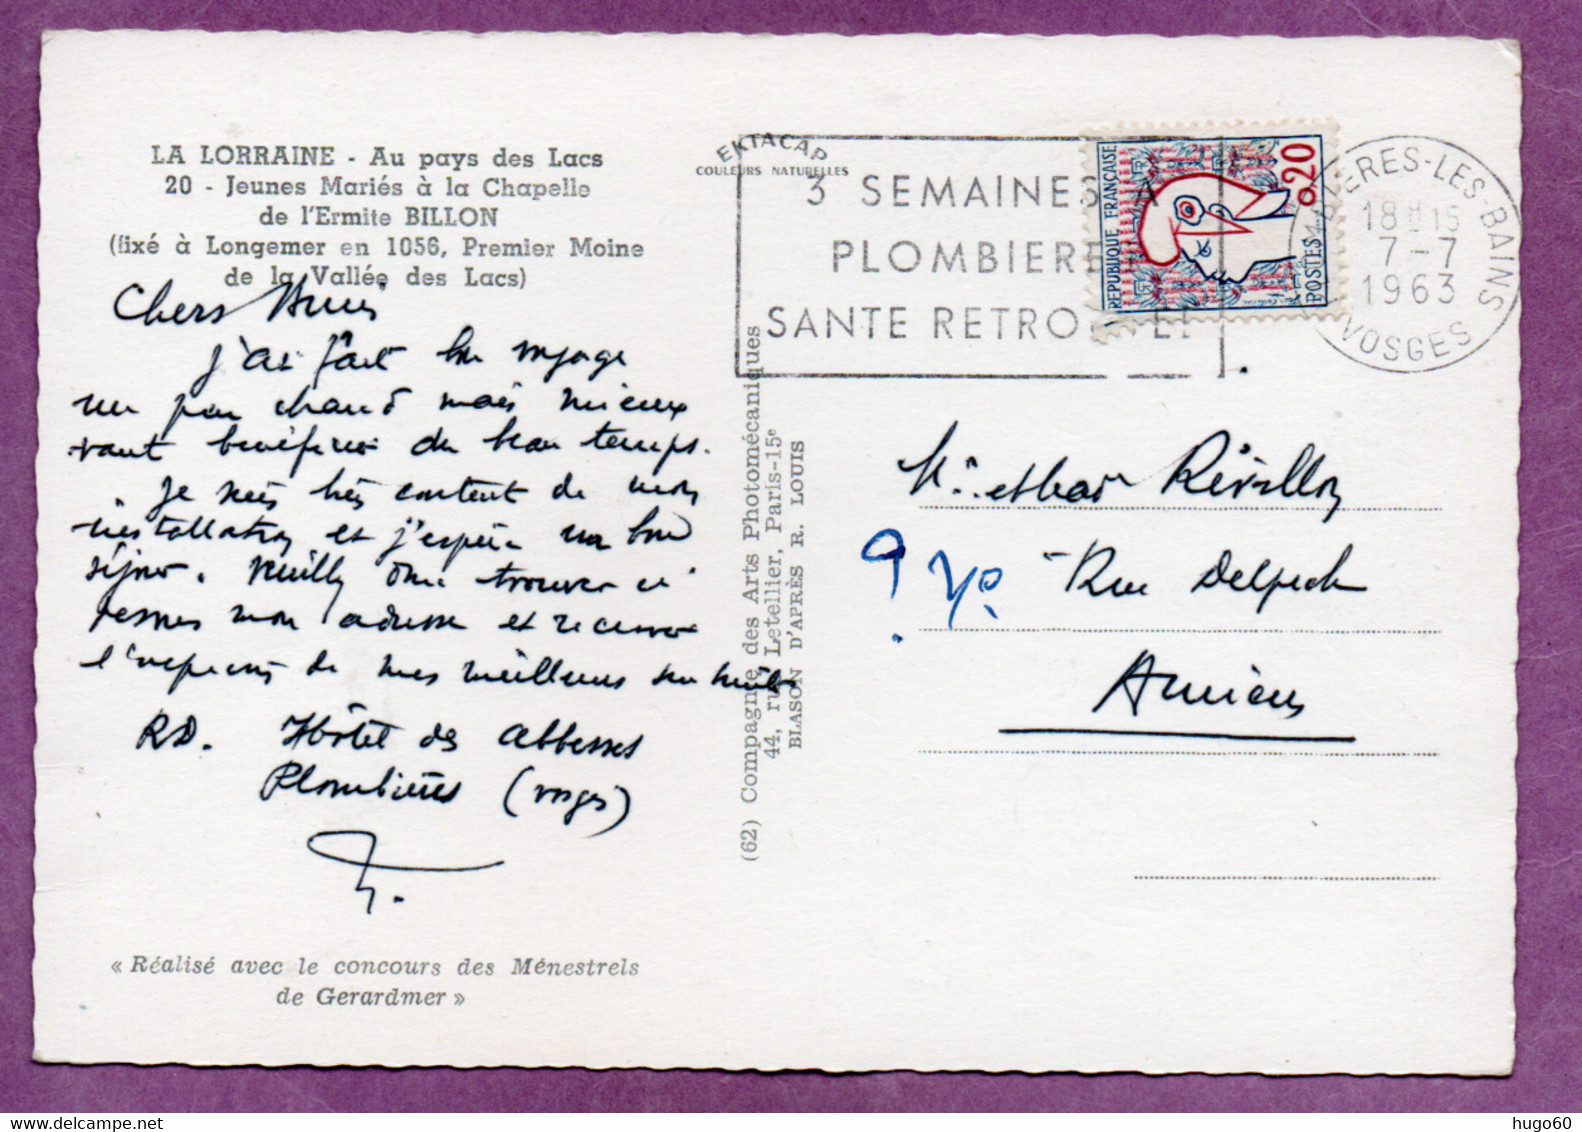 LA LORRAINE - Au pays des Lacs
20 - Jeunes Mariés à la Chapelle
de l'Ermite BILLON
(fixé à Longemer en 1056, Premier Moine
de la Vallée des Lacs)
Chers Amis
J'ai fait bon voyage
un peu chaud mais mieux
vaut bénéficier du beau temps.
Je suis très content de mon
installation et j'espère un bon
séjour. Veuillez donc trouver ci
dessous mon adresse et recevoir
l'expression de mes meilleurs sentiments
RD. Hôtel des Abbesses
Plombières (Vosges)
« Réalisé avec le concours des Ménestrels
de Gerardmer »
EKTACAP
COULEURS NATURELLES
(62) Compagnie des Arts Photomécaniques
44, rue Letellier, Paris-15e
BLASON D'APRÈS R. LOUIS
3 SEMAINES A
PLOMBIERE
SANTE RETRO VEE
REPUBLIQUE FRANÇAISE
0,20
POSTES
BIERES-LES-BAINS
18H15
7-7
1963
VOSGES
Révillon
? Rue Delpech
Amiens
hugo60